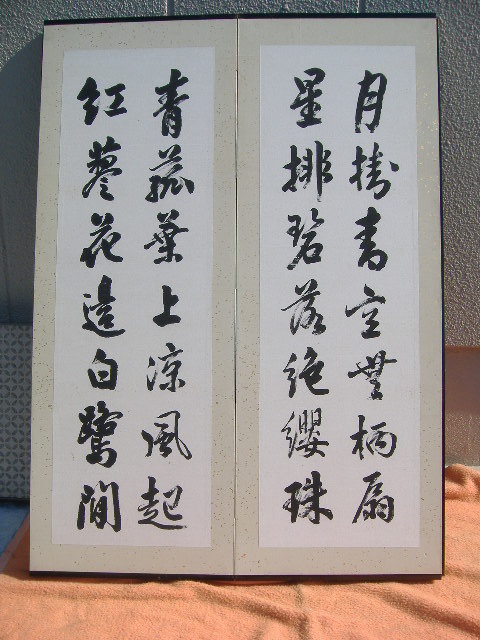 月掛青空無柄扇
星排碧落絶纓珠
青菰葉上涼風起
紅蓼花邊白鷺閒